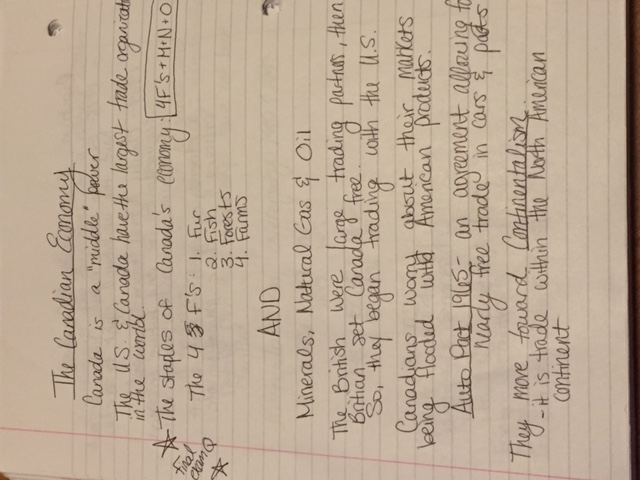 The Canadian Economy
Canada is a "middle" power
The U.S. & Canada have the largest trade
in the world.
The staples of Canada's economy: 4F's+M+N+O
Final
exam Q
The 4 F's: 1. Fur
2. Fish
3. Forests
4. Farms
AND
Minerals, Natural Gas & Oil
The British were large trading partners, then
Britian set Canada free.
So, they began trading with the U.S.
Canadians worry about their markets
being flooded with American products.
Auto Pact 1965- an agreement allowing
nearly free trade in cars & parts
They move toward Continentalism
- it is trade within the North American
continent